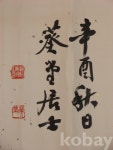 辛酉秋日
葵堂居士
kobay